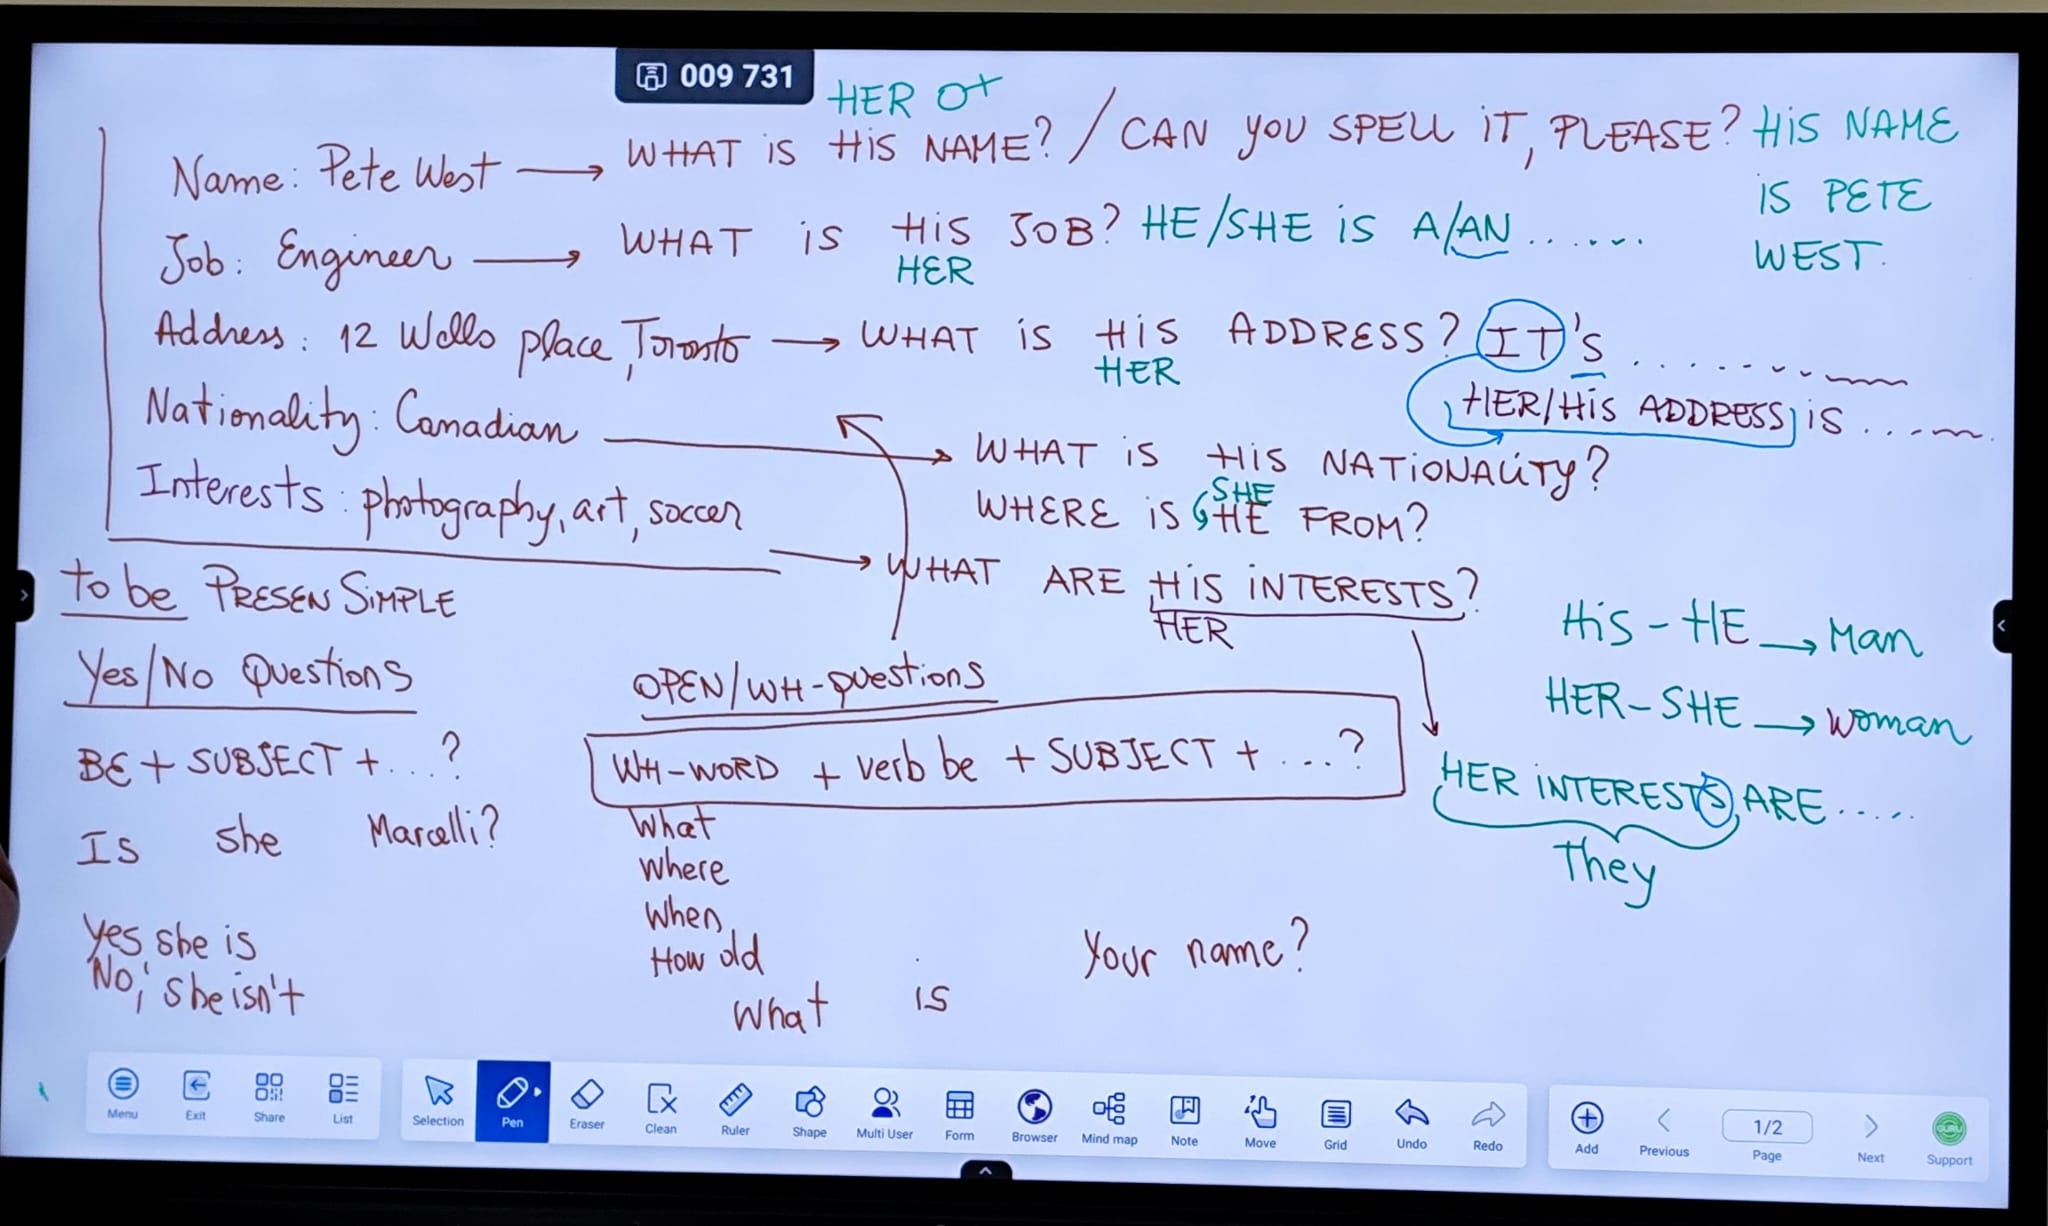 009 731
HER
Name: Pete West → WHAT iS HiS NAME? / CAN YOU SPELL iT, PLEASE? HiS NAME
iS PETE
WEST.
Job: Engineer → WHAT iS HiS JOB? HE/SHE iS A/AN ......
HER
Address: 12 Wells place, Toronto → WHAT iS HiS ADDRESS? IT's ........
HER
HER/HiS ADDRESS iS .....
Nationality: Canadian → WHAT iS HiS NATiONALiTY?
SHE
WHERE iS HE FROM?
Interests: photography, art, soccer → WHAT ARE HiS iNTERESTS?
HER
to be PRESEN SiMPLE
HiS - HE → Man
HER - SHE → woman
HER iNTERESTS ARE .....
They
Yes/No Questions
BE + SUBJECT + ...?
Is she Marcelli?
Yes, she is
No, she isn't
OPEN/WH-questions
WH-WORD + verb be + SUBJECT + ...?
What
Where
When
How old
What is Your name?
Menu Exit Share List Selection Pen Eraser Clean Ruler Shape Multi User Form Browser Mind map Note Move Grid Undo Redo Add Previous 1/2 Page Next Support